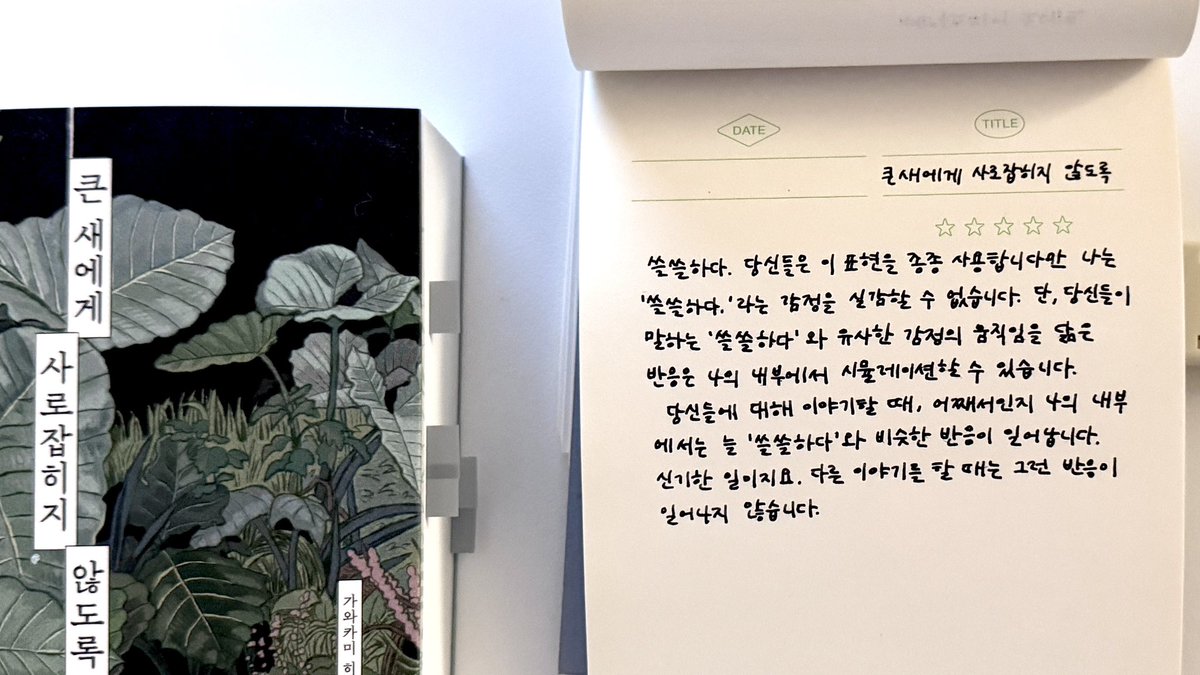 큰 새에게
사로잡히지
않도록
가와카미 히
DATE
TITLE
큰 새에게 사로잡히지 않도록
쓸쓸하다. 당신들은 이 표현을 종종 사용합니다만 나는
'쓸쓸하다.'라는 감정을 실감할 수 없습니다. 단, 당신들이
말하는 '쓸쓸하다'와 유사한 감정의 움직임을 닮은
반응은 나의 내부에서 시뮬레이션할 수 있습니다.
당신들에 대해 이야기할 때, 어째서인지 나의 내부
에서는 늘 '쓸쓸하다'와 비슷한 반응이 일어납니다.
신기한 일이지요. 다른 이야기를 할 때는 그런 반응이
일어나지 않습니다.